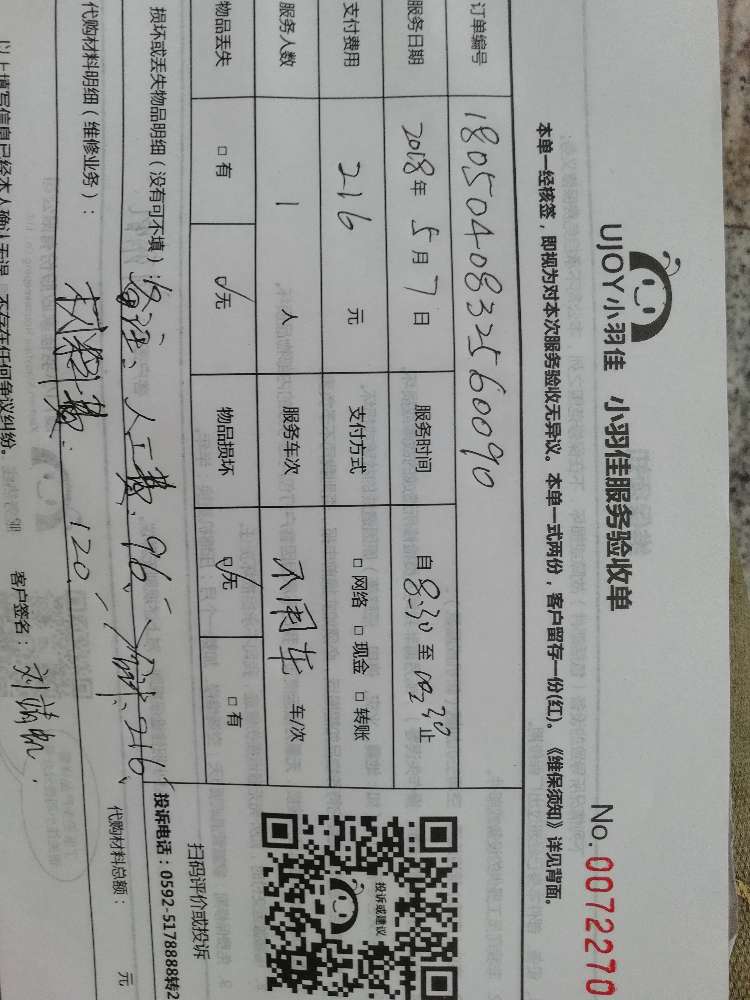 UJOY小羽佳 小羽佳服务验收单
No. 0072270
本单一经核签，即视为对本次服务验收无异议。本单一式两份，客户留存一份(红)。《维保须知》详见背面。
订单编号 1805040832560090
服务日期 2018年5月7日 服务时间 自8:30至10:30止
支付费用 216 元 支付方式 □网络 □现金 □转账
服务人数 1 人 服务车次 不用车 车/次
物品丢失 □有 ☑无 物品损坏 ☑无 □有
投诉或建议
扫码评价或投诉
投诉电话：0592-5178888转2
损坏或丢失物品明细（没有可不填）：备注：人工费：96、合计：216、
代购材料明细（维修业务）：材料费：120、 代购材料总额： 元
以上填写信息已经本人确认无误，不存在任何争议纠纷。 客户签名：